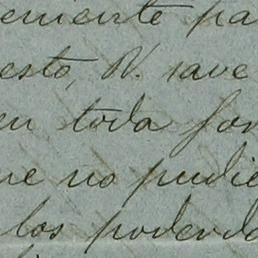 emente pa
esto, N. save
en toda for
ue no pudie
los poderda